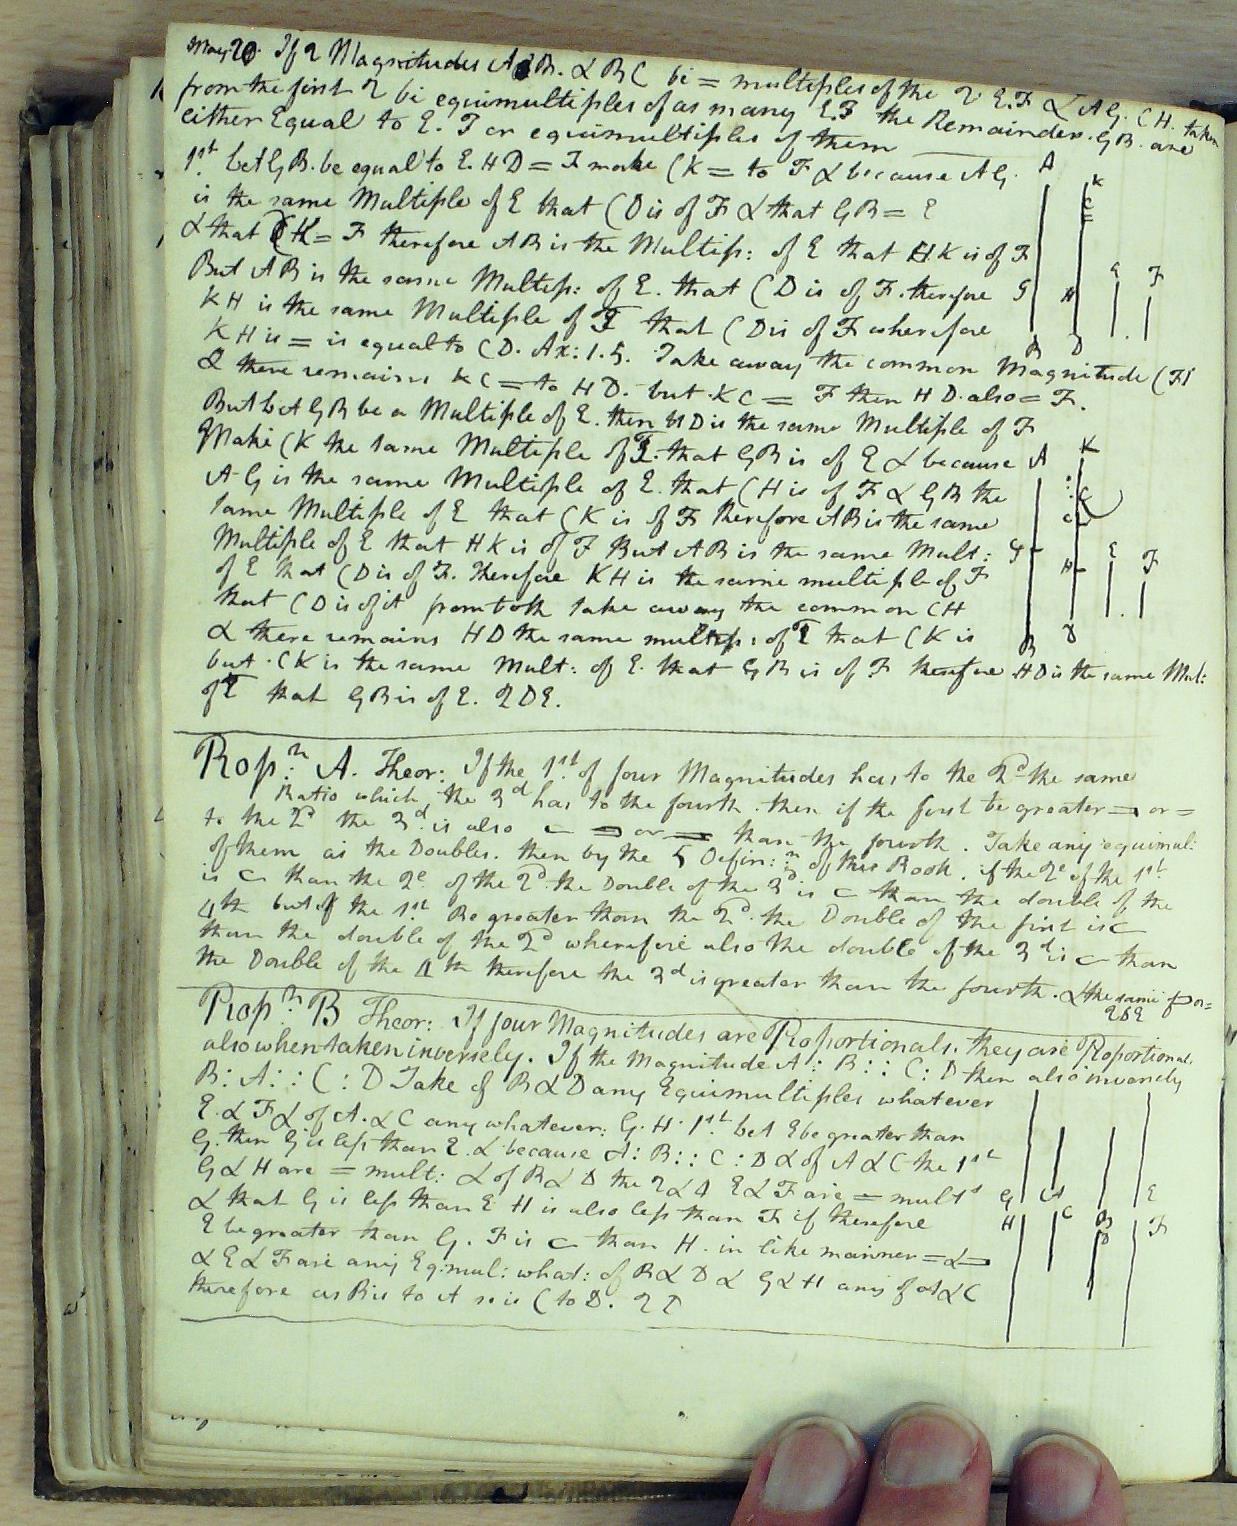 May 20. If 2 Magnitudes A B. & B C be = multiples of the 2 E. F & A G. C H. taken
from the first 2 be equimultiples of as many E. F the Remainder. G B. are
either Equal to E. F or equimultiples of them
1st. Let G B. be equal to E. H D = F make C K = to F & because A G.
is the same Multiple of E that C D is of F & that G B = E
& that C K = F therefore A B is the Multip: of E that H K is of F
But A B is the same Multip: of E. that C D is of F. therefore
K H is the same Multiple of F that C D is of F wherefore
K H is = is equal to C D. Ax: 1. 5. Take away the common Magnitude C H
& there remains K C = to H D. but K C = F then H D. also = F.
But let G B be a Multiple of E. then H D is the same Multiple of F
Make C K the same Multiple of F. that G B is of E & because
A G is the same Multiple of E. that C H is of F & G B the
same Multiple of E that C K is of F therefore A B is the same
Multiple of E that H K is of F But A B is the same Mult:
of E that C D is of F. Therefore K H is the same multiple of F
that C D is of it from both take away the common C H
& there remains H D the same multip: of F that C K is
but. C K is the same Mult: of E. that G B is of F therefore H D is the same Mul:
of F that G B is of E. Q D E.
A K C G H E F B D
A K C G H E F B D
Prop:n A. Theor: If the 1st. of four Magnitudes has to the 2d the same
Ratio which the 3d has to the fourth. then if the first be greater = or =
to the 2d the 3d. is also ⊏ ⊐ or = than the fourth. Take any equimul:
of them as the Doubles. then by the 5 Defin:n of this Book. if the 2e of the 1st
is ⊏ than the 2e of the 2d. the Double of the 3d is ⊏ than the double of the
4th but if the 1st Be greater than the 2d. the Double of the first is ⊏
than the double of the 2d wherefore also the double of the 3d is ⊏ than
the Double of the 4th therefore the 3d is greater than the fourth. & the same ⊐ or =
Prop:n B Theor: If four Magnitudes are Proportionals. they are Proportional.
also when taken inversely. If the Magnitude A : B : : C : D then also inversely
B : A : : C : D Take of B & D any Equimultiples whatever
E. & F & of A. & C any whatever. G. H. 1st. let E be greater than
G. then G is less than E. & because A : B : : C : D & of A & C the 1st
G & H are = mult: & of B & D the 2 & 4 E & F are = mults
& that G is less than E H is also less than F if therefore
E be greater than G. F is ⊏ than H. in like manner = & ⊐
& E & F are any Eq: mul: what: of B & D & G & H any of A & C
therefore as B is to A so is C to D. Q D
G A B E
H C D F